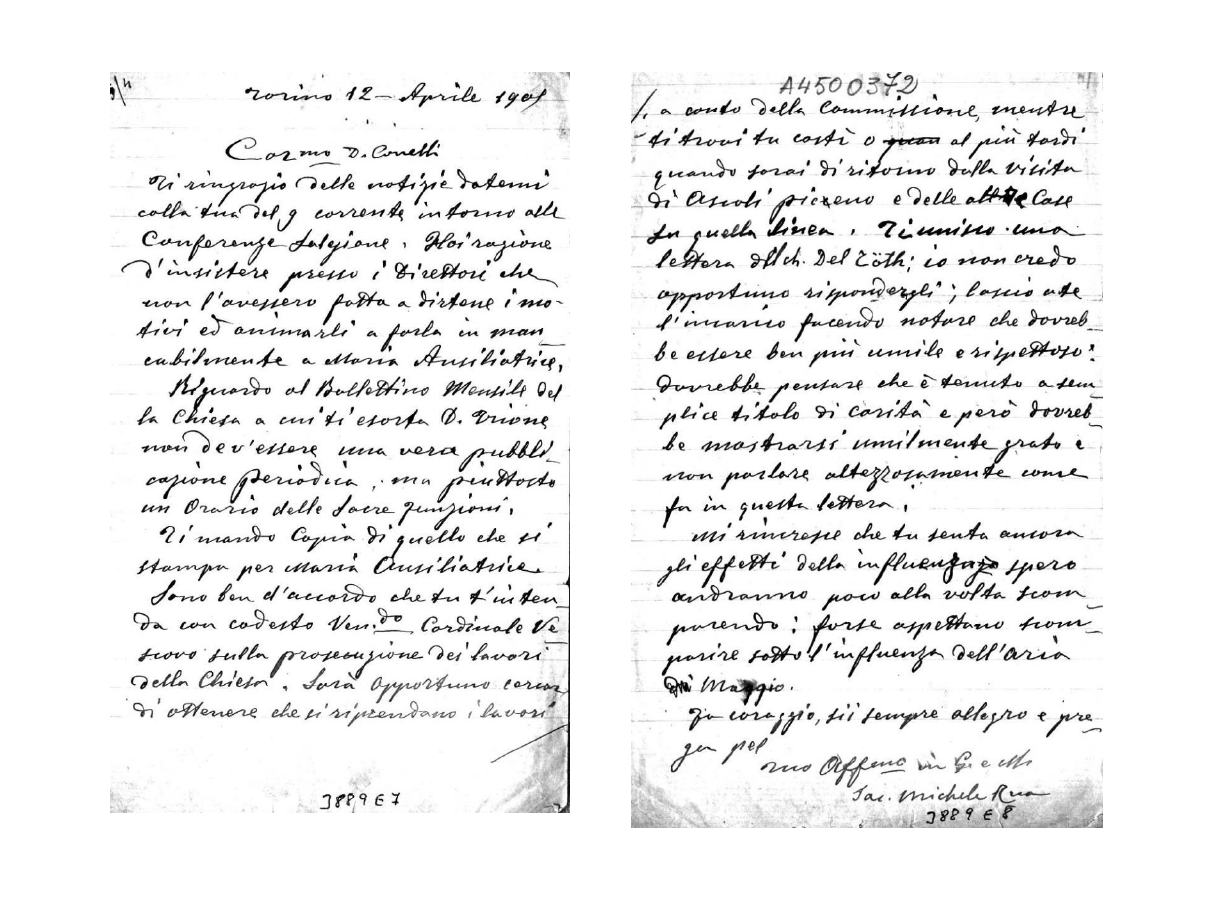 Torino 12 - Aprile 1905
Car.mo D. Conelli
Ti ringrazio delle notizie datemi
colla tua del 9 corrente intorno alle
Conferenze Salesiane. Hai ragione
d'insistere presso i Direttori che
non l'avessero fatta a dirtene i mo-
tivi ed animarli a farla in man
cabilmente a Maria Ausiliatrice.
Riguardo al Bollettino Mensile del
la Chiesa a cui ti esorta D. Trione
non dev'essere una vera pubbli_
cazione periodica, ma piuttosto
un Orario delle Sacre funzioni.
Ti mando Copia di quello che si
stampa per Maria Ausiliatrice.
Sono ben d'accordo che tu t'inten_
da con codesto Ven.do Cardinale Ve
scovo sulla prosecuzione dei lavori
della Chiesa. Sarà opportuno cercar
di ottenere che si riprendano i lavori
J889E7
A4500372
/. a conto della Commissione, mentre
ti trovi tu costì o quan al più tardi
quando sarai di ritorno dalla visita
di Ascoli piceno e delle altre Case
su quella linea. Ti unisco una
lettera del ch. Del Zôth; io non credo
opportuno rispondergli; lascio a te
l'incarico facendo notare che dovreb_
be essere ben più umile e rispettoso:
dovrebbe pensare che è tenuto a sem
plice titolo di carità e però dovreb_
be mostrarsi umilmente grato e
non parlare altezzosamente come
fa in questa lettera.
Mi rincresce che tu senta ancora
gli effetti della influenza spero
andranno poco alla volta scom_
parendo; forse aspettano scom_
parire sotto l'influenza dell'aria
di Maggio.
Fa coraggio, sii sempre allegro e pre_
ga pel
tuo Aff.mo in G. e M.
Sac. Michele Rua
J889E8